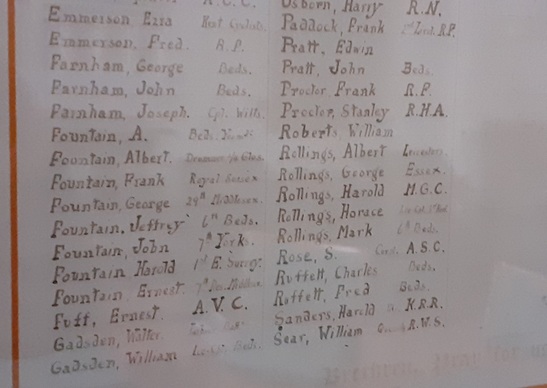 Emmerson, Ezra Kent Cyclists
Emmerson, Fred. R.F.
Farnham, George Beds.
Farnham, John Beds.
Farnham, Joseph. Cpl. Wilts.
Fountain, A. Beds.
Fountain, Albert. Drummer
Fountain, Frank Royal Sussex
Fountain, George 29th Middlesex.
Fountain, Jeffrey 6th Beds.
Fountain, John 7th Yorks.
Fountain Harold 1st E. Surrey.
Fountain, Ernest. 7th Middlesex
Fuff, Ernest. A.V.C.
Gadsden, Walter.
Gadsden, William Beds.
Osborn, Harry R.N.
Paddock, Frank 2nd R.F.
Pratt, Edwin
Pratt, John Beds.
Procter Frank R.F.
Procter, Stanley R.H.A.
Roberts, William
Rollings, Albert Leicesters
Rollings, George Essex.
Rollings, Harold M.G.C.
Rollings, Horace
Rollings, Mark 6th Beds.
Rose, S. A.S.C.
Ruffett, Charles Beds.
Ruffett, Fred Beds.
Sanders, Harold K.R.R.
Sear, William R.W.S.
Brethren, Pray for us